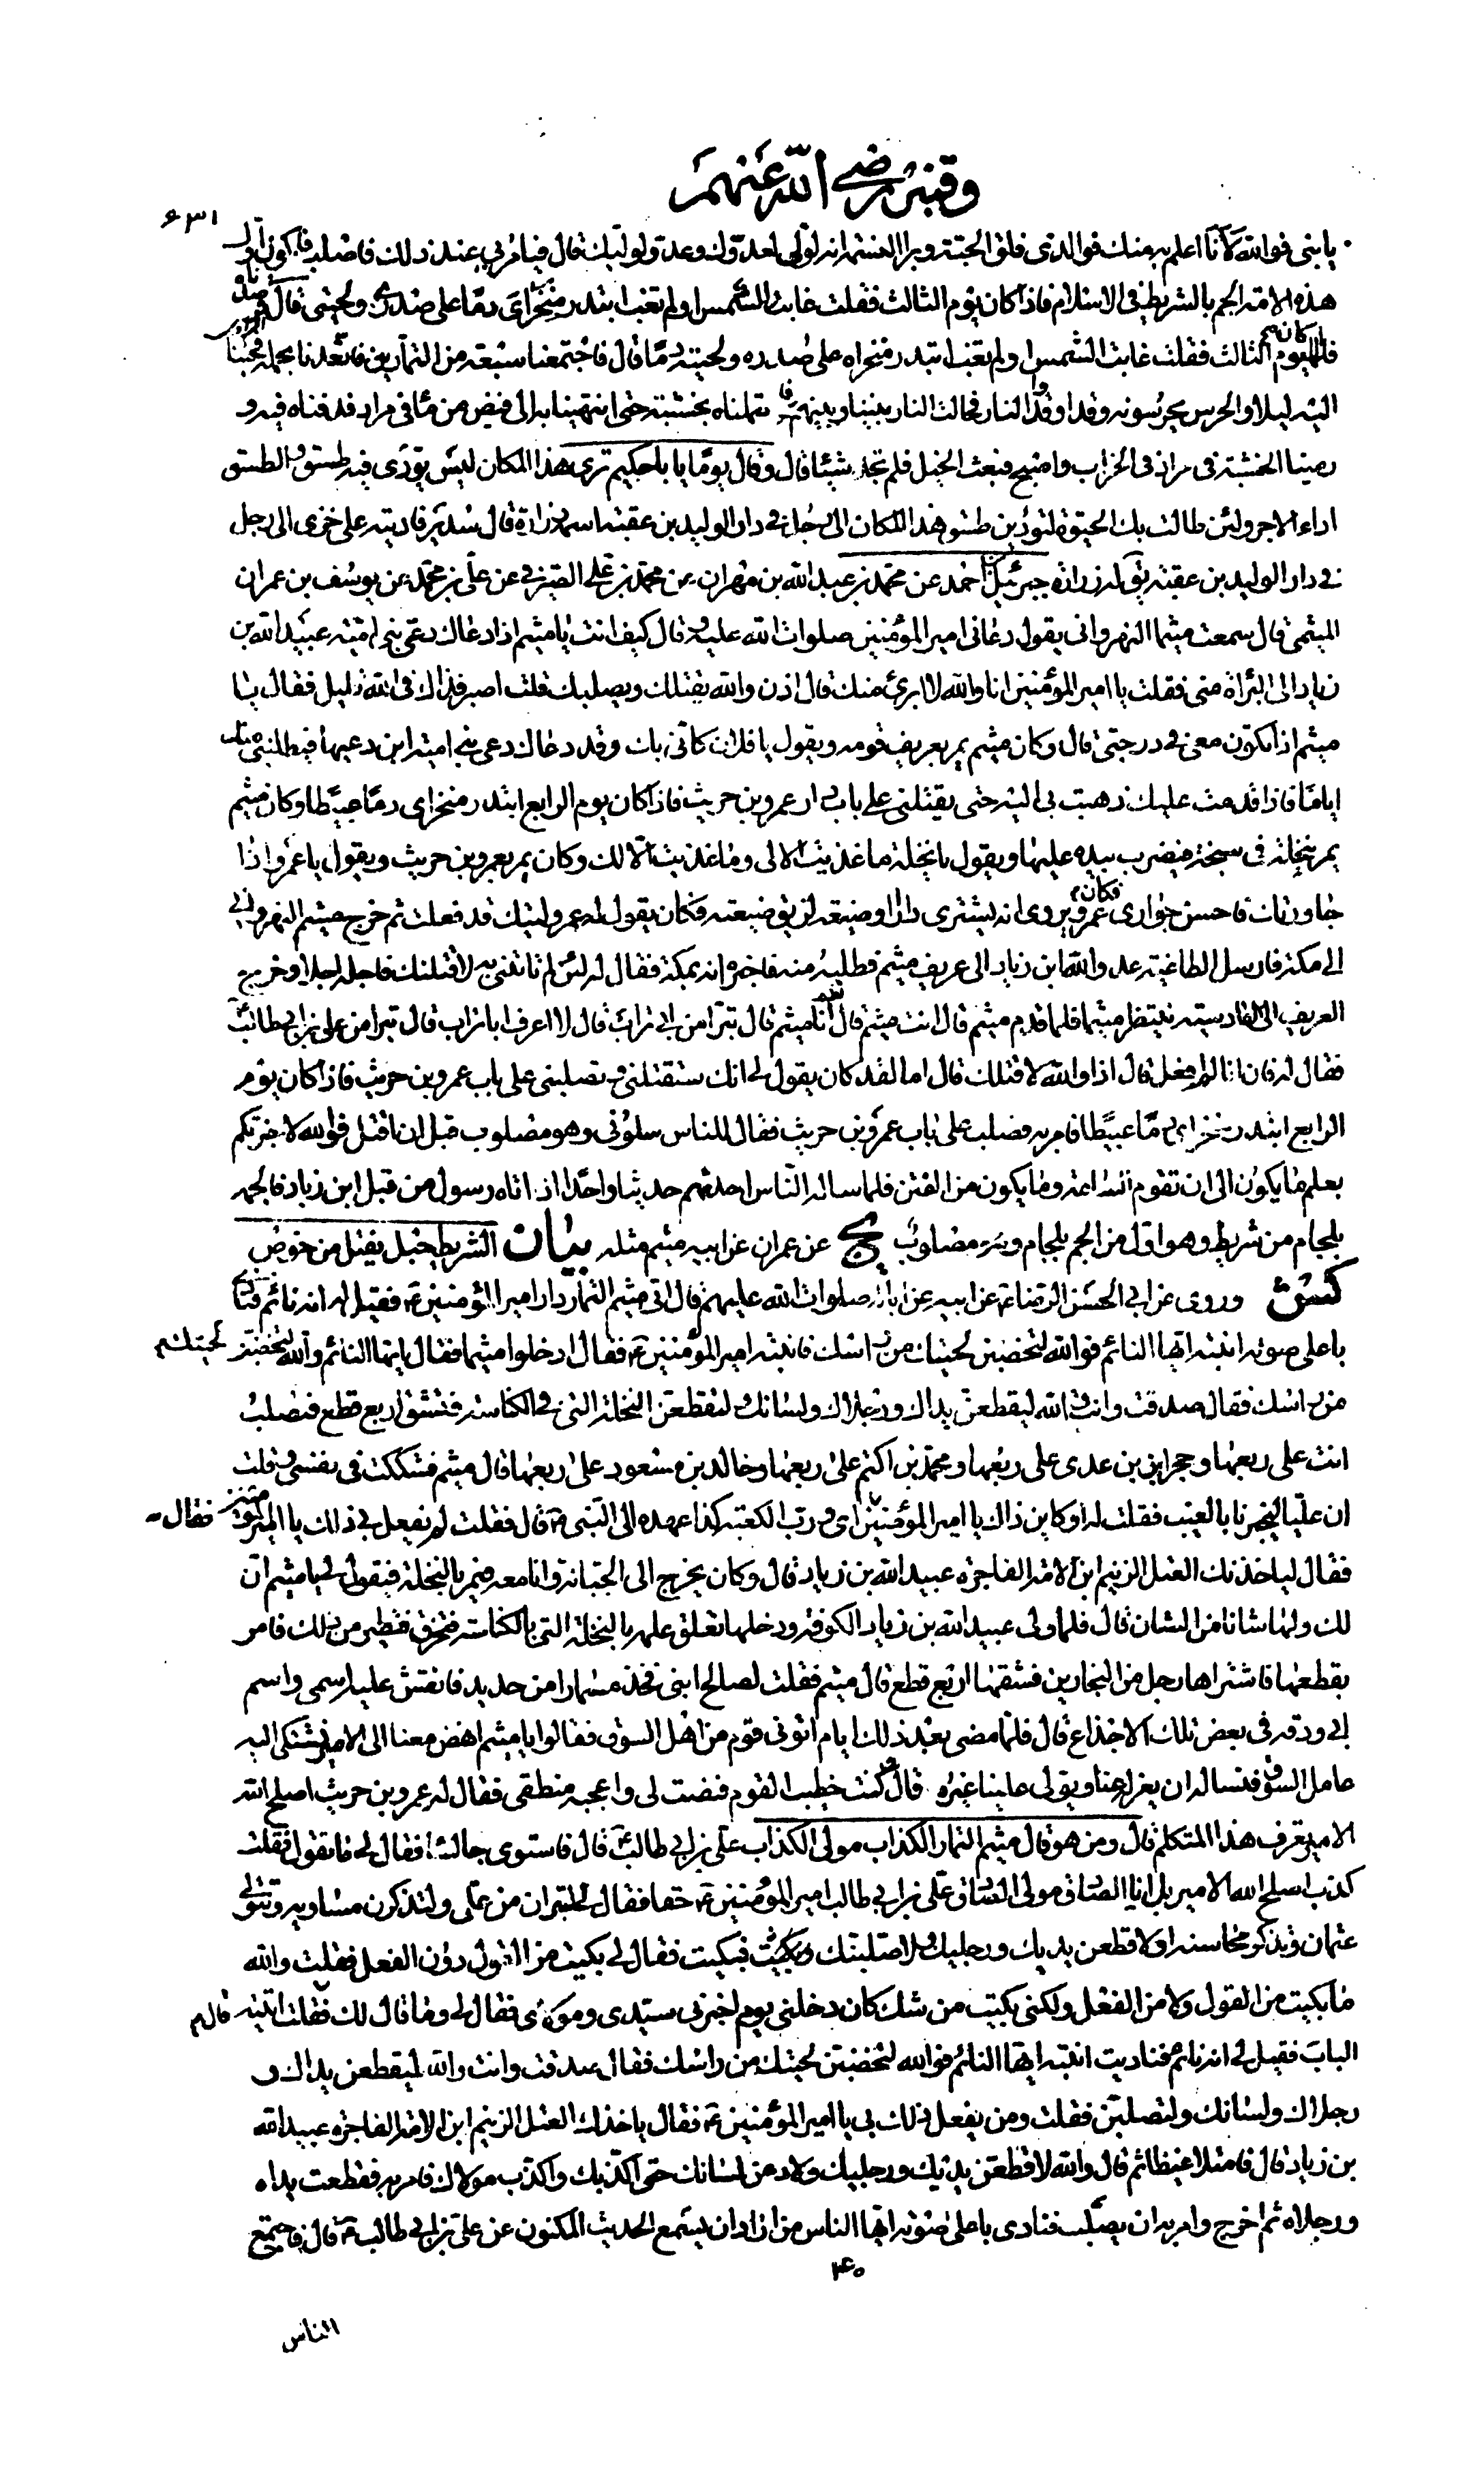 وقنبر رضي الله عنهم
۶۳۱
يا بنى فوالله لأنا اعلم به منك فوالذى فلق الحبة وبرا النسمة انه لقولى لعدوك وعدوى ولوليك قال فيأمر بى عند ذلك فاصلب فاكون اول
هذه الامة الجم بالشريط فى الاسلام فاذا كان يوم الثالث فقلت غابت الشمس او لم تغب ابتدر منخراى دما على صدرى ولحيتى قال فرصدناه
فلما كان اليوم الثالث فقلت غابت الشمس او لم تغب ابتدر منخراه على صدره ولحيته دما قال فاجتمعنا سبعة من التمارين فاتعدنا بحمله فجئنا
اليه ليلا والحرس يحرسونه وقد اوقدوا النار فحالت النار بيننا وبينهم فاحتملناه بخشبته حتى انتهينا به الى فيض من ماء فى مراد فدفناه فيه و
رمينا الخشبة فى مراد فى الخراب واصبح فبعث الخيل فلم تجد شيئا قال وقال يوما يا با حكيم ترى هذا المكان ليس يؤدى فيه طسق والطسق
اداء الاجر ولئن طالت بك الحيوة لتؤدين طسق هذا المكان الى رجل فى دار الوليد بن عقبة اسمه زرارة قال سدير فاديته على خزى الى رجل
فى دار الوليد بن عقبة يق له زرارة جبرئيل بن احمد عن محمد بن عبد الله بن مهران عن محمد بن على الصيرفى عن على بن محمد عن يوسف بن عمران
الميثمى قال سمعت ميثما النهروانى يقول دعانى امير المؤمنين صلوات الله عليه وقال كيف انت يا ميثم اذا دعاك دعى بنى امية عبيد الله بن
زياد الى البراة منى فقلت يا امير المؤمنين انا والله لا ابرئ منك قال اذن والله يقتلك ويصلبك قلت اصبر فذاك فى الله قليل فقال يا
ميثم اذا تكون معى فى درجتى قال وكان ميثم يمر بعريف قومه ويقول يا فلان كانى بك وقد دعاك دعى بنى امية ابن دعيها فيطلبنى منك
اياما فاذا قدمت عليك ذهبت بى اليه حتى يقتلنى على باب دار عمرو بن حريث فاذا كان يوم الرابع ابتدر منخراى دما عبيطا وكان ميثم
يمر بنخلة فى سبخة فيضرب بيده عليها ويقول يا نخلة ما غذيت الا لى وما غذيت الا لك وكان يمر بعمرو بن حريث ويقول يا عمرو اذا
جاورتك فاحسن جوارى فكان عمرو يروى انه يشترى دارا او ضيعة لزيق ضيعته فكان يقول له عمرو ليتك قد فعلت ثم خرج ميثم النهروانى
الى مكة فارسل الطاغية عدو الله ابن زياد الى عريف ميثم فطلبه منه فاخبره انه بمكة فقال له لئن لم تاتنى به لاقتلنك فاجله اجلا وخرج
العريف الى القادسية ينتظر ميثما فلما قدم ميثم قال انت ميثم قال نعم انا ميثم قال تبرأ من ابى تراب قال لا اعرف ابا تراب قال تبرا من على بن ابى طالب
فقال له فان انا لم افعل قال اذا والله لاقتلك قال اما لقد كان يقول لى انك ستقتلنى وتصلبنى على باب عمرو بن حريث فاذا كان يوم
الرابع ابتدر منخراى دما عبيطا فامر به فصلب على باب عمرو بن حريث فقال للناس سلونى وهو مصلوب قبل ان اقتل فوالله لاخبرتكم
بعلم ما يكون الى ان تقوم الساعة وما يكون من الفتن فلما ساله الناس حدثهم حديثا واحدا اذ اتاه رسول من قبل ابن زياد فالجمه
بلجام من شريط وهو اول من الجم بلجام وهو مصلوب يج عن عمران عن ابيه ميثم مثله بيان الشريط حبل يفتل من خوص
كش وروى عن ابى الحسن الرضا ع عن ابيه عن ابائه صلوات الله عليهم قال اتى ميثم التمار دار امير المؤمنين ع فقيل له انه نائم فنادى
باعلى صوته انتبه ايها النائم فوالله لتخضبن لحيتك من راسك فانتبه امير المؤمنين ع فقال ادخلوا ميثما فقال ايها النائم والله لتخضبن لحيتك
من راسك فقال صدقت وانت والله ليقطعن يداك ورجلاك ولسانك ولتقطعن النخلة التى فى الكناسة فتشق اربع قطع فتصلب
انت على ربعها وحجر بن عدى على ربعها ومحمد بن اكثم على ربعها وخالد بن مسعود على ربعها قال ميثم فشككت فى نفسى وقلت
ان عليا ليخبرنا بالغيب فقلت له او كاين ذاك يا امير المؤمنين فقال اى ورب الكعبة كذا عهده الى النبى ص قال فقلت لم يفعل بى ذلك يا امير المؤمنين
فقال لياخذنك العتل الزنيم ابن الامة الفاجرة عبيد الله بن زياد قال وكان يخرج الى الجبانة وانا معه فيمر بالنخلة فيقول لى يا ميثم ان
لك ولها شانا من الشان قال فلما ولى عبيد الله بن زياد الكوفة ودخلها تعلق علمه بالنخلة التى بالكناسة فتخرق فتطير من ذلك فامر
بقطعها فاشتراها رجل من النجارين فشقها اربع قطع قال ميثم فقلت لصالح ابنى فخذ مسمارا من حديد فانقش عليه اسمى واسم
ابى ودقه فى بعض تلك الاجذاع قال فلما مضى بعد ذلك ايام اتونى قوم من اهل السوق فقالوا يا ميثم انهض معنا الى الامير نشتكى اليه
عامل السوق فنساله ان يعزله عنا ويولى علينا غيره قال وكنت خطيب القوم فنصت لى واعجبه منطقى فقال له عمرو بن حريث اصلح الله
الامير تعرف هذا المتكلم قال ومن هو قال ميثم التمار الكذاب مولى الكذاب على بن ابى طالب ع قال فاستوى جالسا فقال لى ما تقول فقلت
كذب اصلح الله الامير بل انا الصادق مولى الصادق على بن ابى طالب امير المؤمنين ع حقا فقال لى لتبران من على ولتذكرن مساويه وتتولى
عثمان وتذكر محاسنه او لاقطعن يديك ورجليك ولاصلبنك فبكيت فقال لى بكيت من القول دون الفعل فقلت والله
ما بكيت من القول ولا من الفعل ولكنى بكيت من شك كان دخلنى يوم اخبرنى سيدى ومولاى فقال لى وما قال لك قال فقلت اتيته
الباب فقيل لى انه نائم فناديت انتبه ايها النائم فوالله لتخضبن لحيتك من راسك فقال صدقت وانت والله ليقطعن يداك و
رجلاك ولسانك ولتصلبن فقلت ومن يفعل ذلك بى يا امير المؤمنين ع فقال ياخذك العتل الزنيم ابن الامة الفاجرة عبيد الله
بن زياد قال فامتلا غيظا ثم قال والله لاقطعن يديك ورجليك ولادعن لسانك حتى اكذبك واكذب مولاك فامر به فقطعت يداه
ورجلاه ثم اخرج وامر به ان يصلب فنادى باعلى صوته ايها الناس من اراد ان يسمع الحديث المكنون عن على بن ابى طالب ع قال فاجتمع
۴۰
الناس